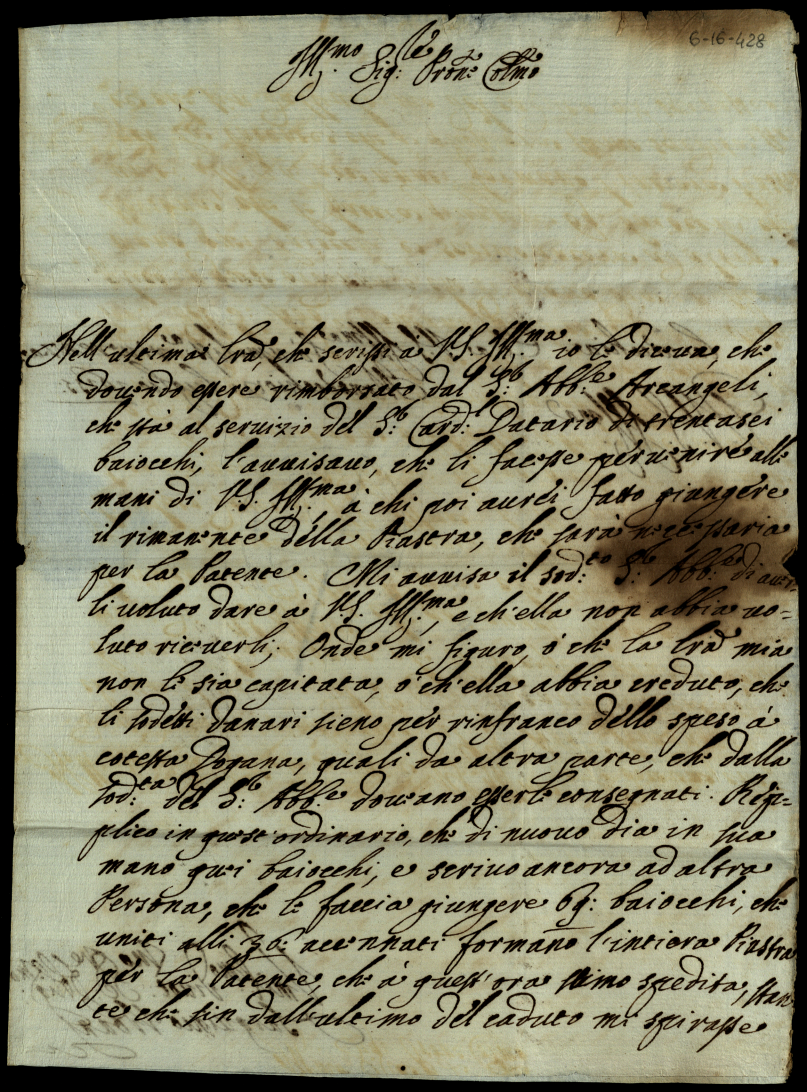 6-16-428
Ill.mo Sig.re Pron.e Col.mo
Nell'ultima lra, che scrissi a V.S. Ill.ma io le diceva, che
dovendo essere rimborsato dal S.r Abb.e Arcangeli,
che stà al servizio del S.r Card.l Datario di trentasei
baiocchi, l'avvisavo, che li facesse pervenire alle
mani di V.S. Ill.ma à chi poi avrei fatto giungere
il rimanente della Piastra, che sarà necessaria
per la Patente. Mi avvisa il sod.to S.r Abb.e di aver-
li voluto dare à V.S. Ill.ma, e ch'ella non abbia vo=
luto riceverli; Onde mi figuro, ò che la lra mia
non le sia capitata, ò ch'ella abbia creduto, che
li sodetti danari sieno per rinfranco dello speso à
cotesta Dogana, quali da altra parte, che dalla
sod.ta del S.r Abb.e dovano esserle consegnati. Rep-
plico in quest'ordinario, che di nuovo dia in sua
mano quei baiocchi, e scrivo ancora ad altra
Persona, che le faccia giungere 69: baiocchi, che
uniti alli 36. accennati formano l'intiera Piastra
per la Patente, che à quest'ora stimo spedita, stan-
te che sin dall'ultimo del caduto mi spirasse